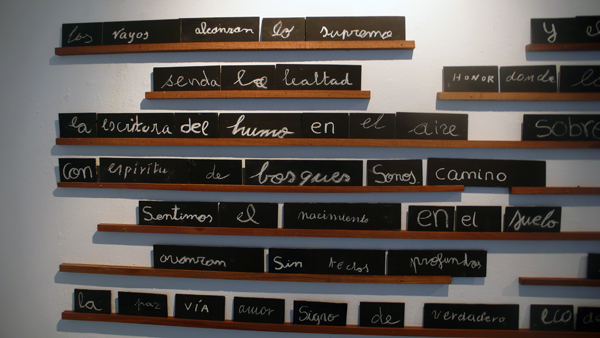 los rayos alcanzan lo supremo y el
senda la lealtad HONOR donde
la escritura del humo en el aire sobre
con espiritu de bosques Sonos camino
Sentimos el nacimiento en el suelo
avanzan Sin profundos
la paz VÍA amor Signo de verdadero eco